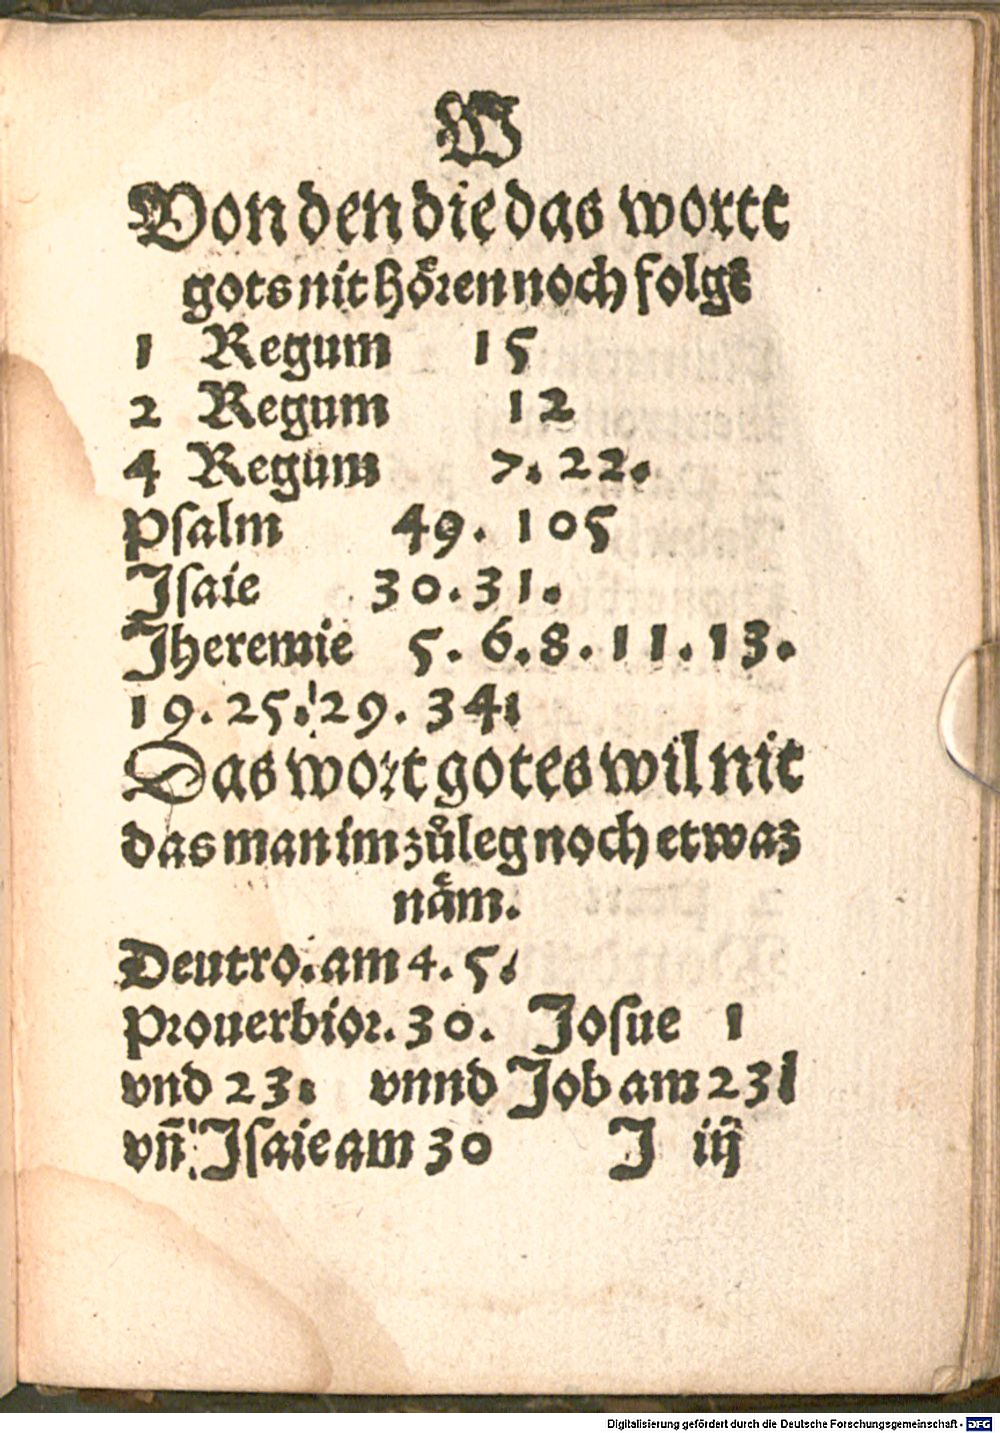 W
Von den die das wortt
gots nit hoͤren noch folgẽ
1 Regum 15
2 Regum 12
4 Regum 7. 22.
Psalm 49. 105
Jsaie 30. 31.
Jheremie 5. 6. 8. 11. 13.
19. 25. 29. 34.
Das wort gotes wil nit
das man im zuͦleg noch etwaz
naͤm.
Deutro. am 4. 5.
Prouerbior. 30. Josue 1
vnd 23. vnnd Job am 23
vñ Jsaie am 30 J iij
Digitalisierung gefördert durch die Deutsche Forschungsgemeinschaft - DFG